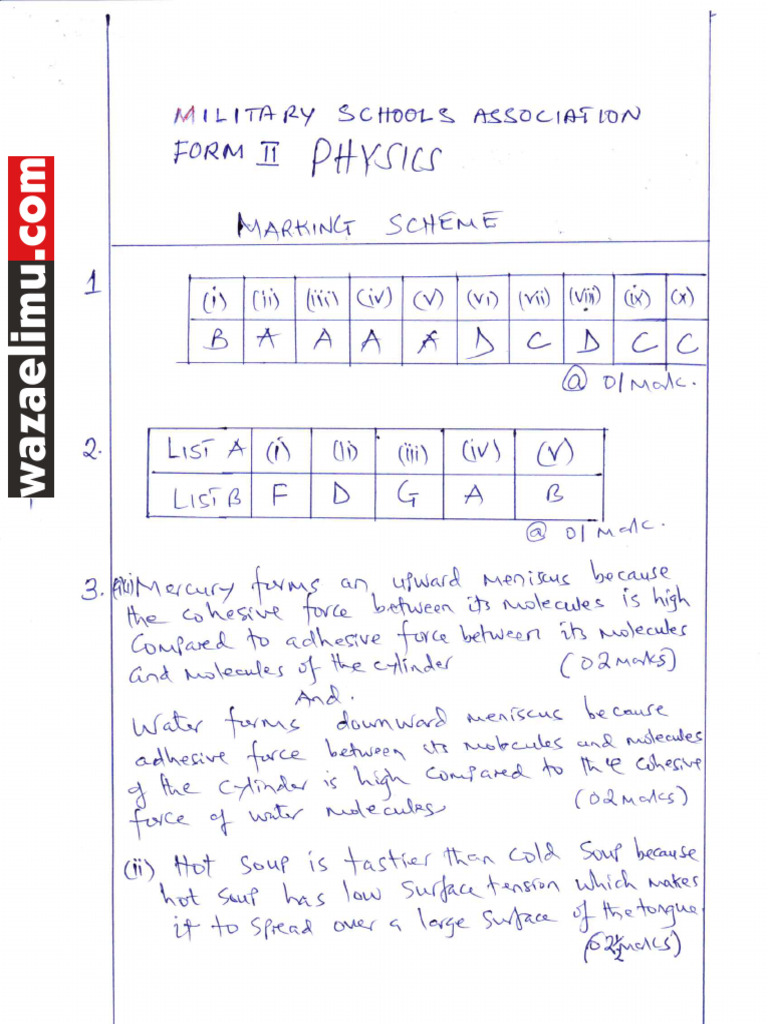 MILITARY SCHOOLS ASSOCIATION
FORM II PHYSICS
MARKING SCHEME
wazaelimu.com
1
(i) (ii) (iii) (iv) (v) (vi) (vii) (viii) (ix) (x)
B A A A A D C D C C
@ 01 Mark.
2.
LIST A (i) (ii) (iii) (iv) (v)
LIST B F D G A B
@ 01 mark.
3. Mercury forms an upward meniscus because
the cohesive force between its molecules is high
compared to adhesive force between its molecules
and molecules of the cylinder (02 marks)
And.
Water forms downward meniscus because
adhesive force between its molecules and molecules
of the cylinder is high compared to the cohesive
force of water molecules (02 marks)
(ii) Hot soup is tastier than cold soup because
hot soup has low surface tension which makes
it to spread over a large surface of the tongue
(02½ marks)